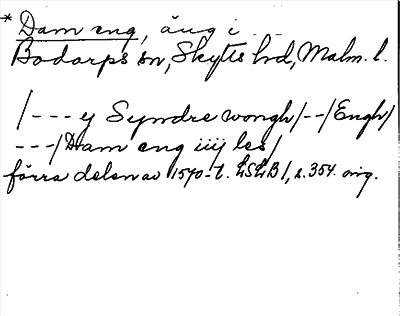 * Dam eng, äng i
Bodarps sn, Skytts hd, Malm. l.
/--- y Syndre wongh/--/Engh/
---/Dam eng iiij les/
förra delen av 1570-t. LSLB 1, s. 354. orig.